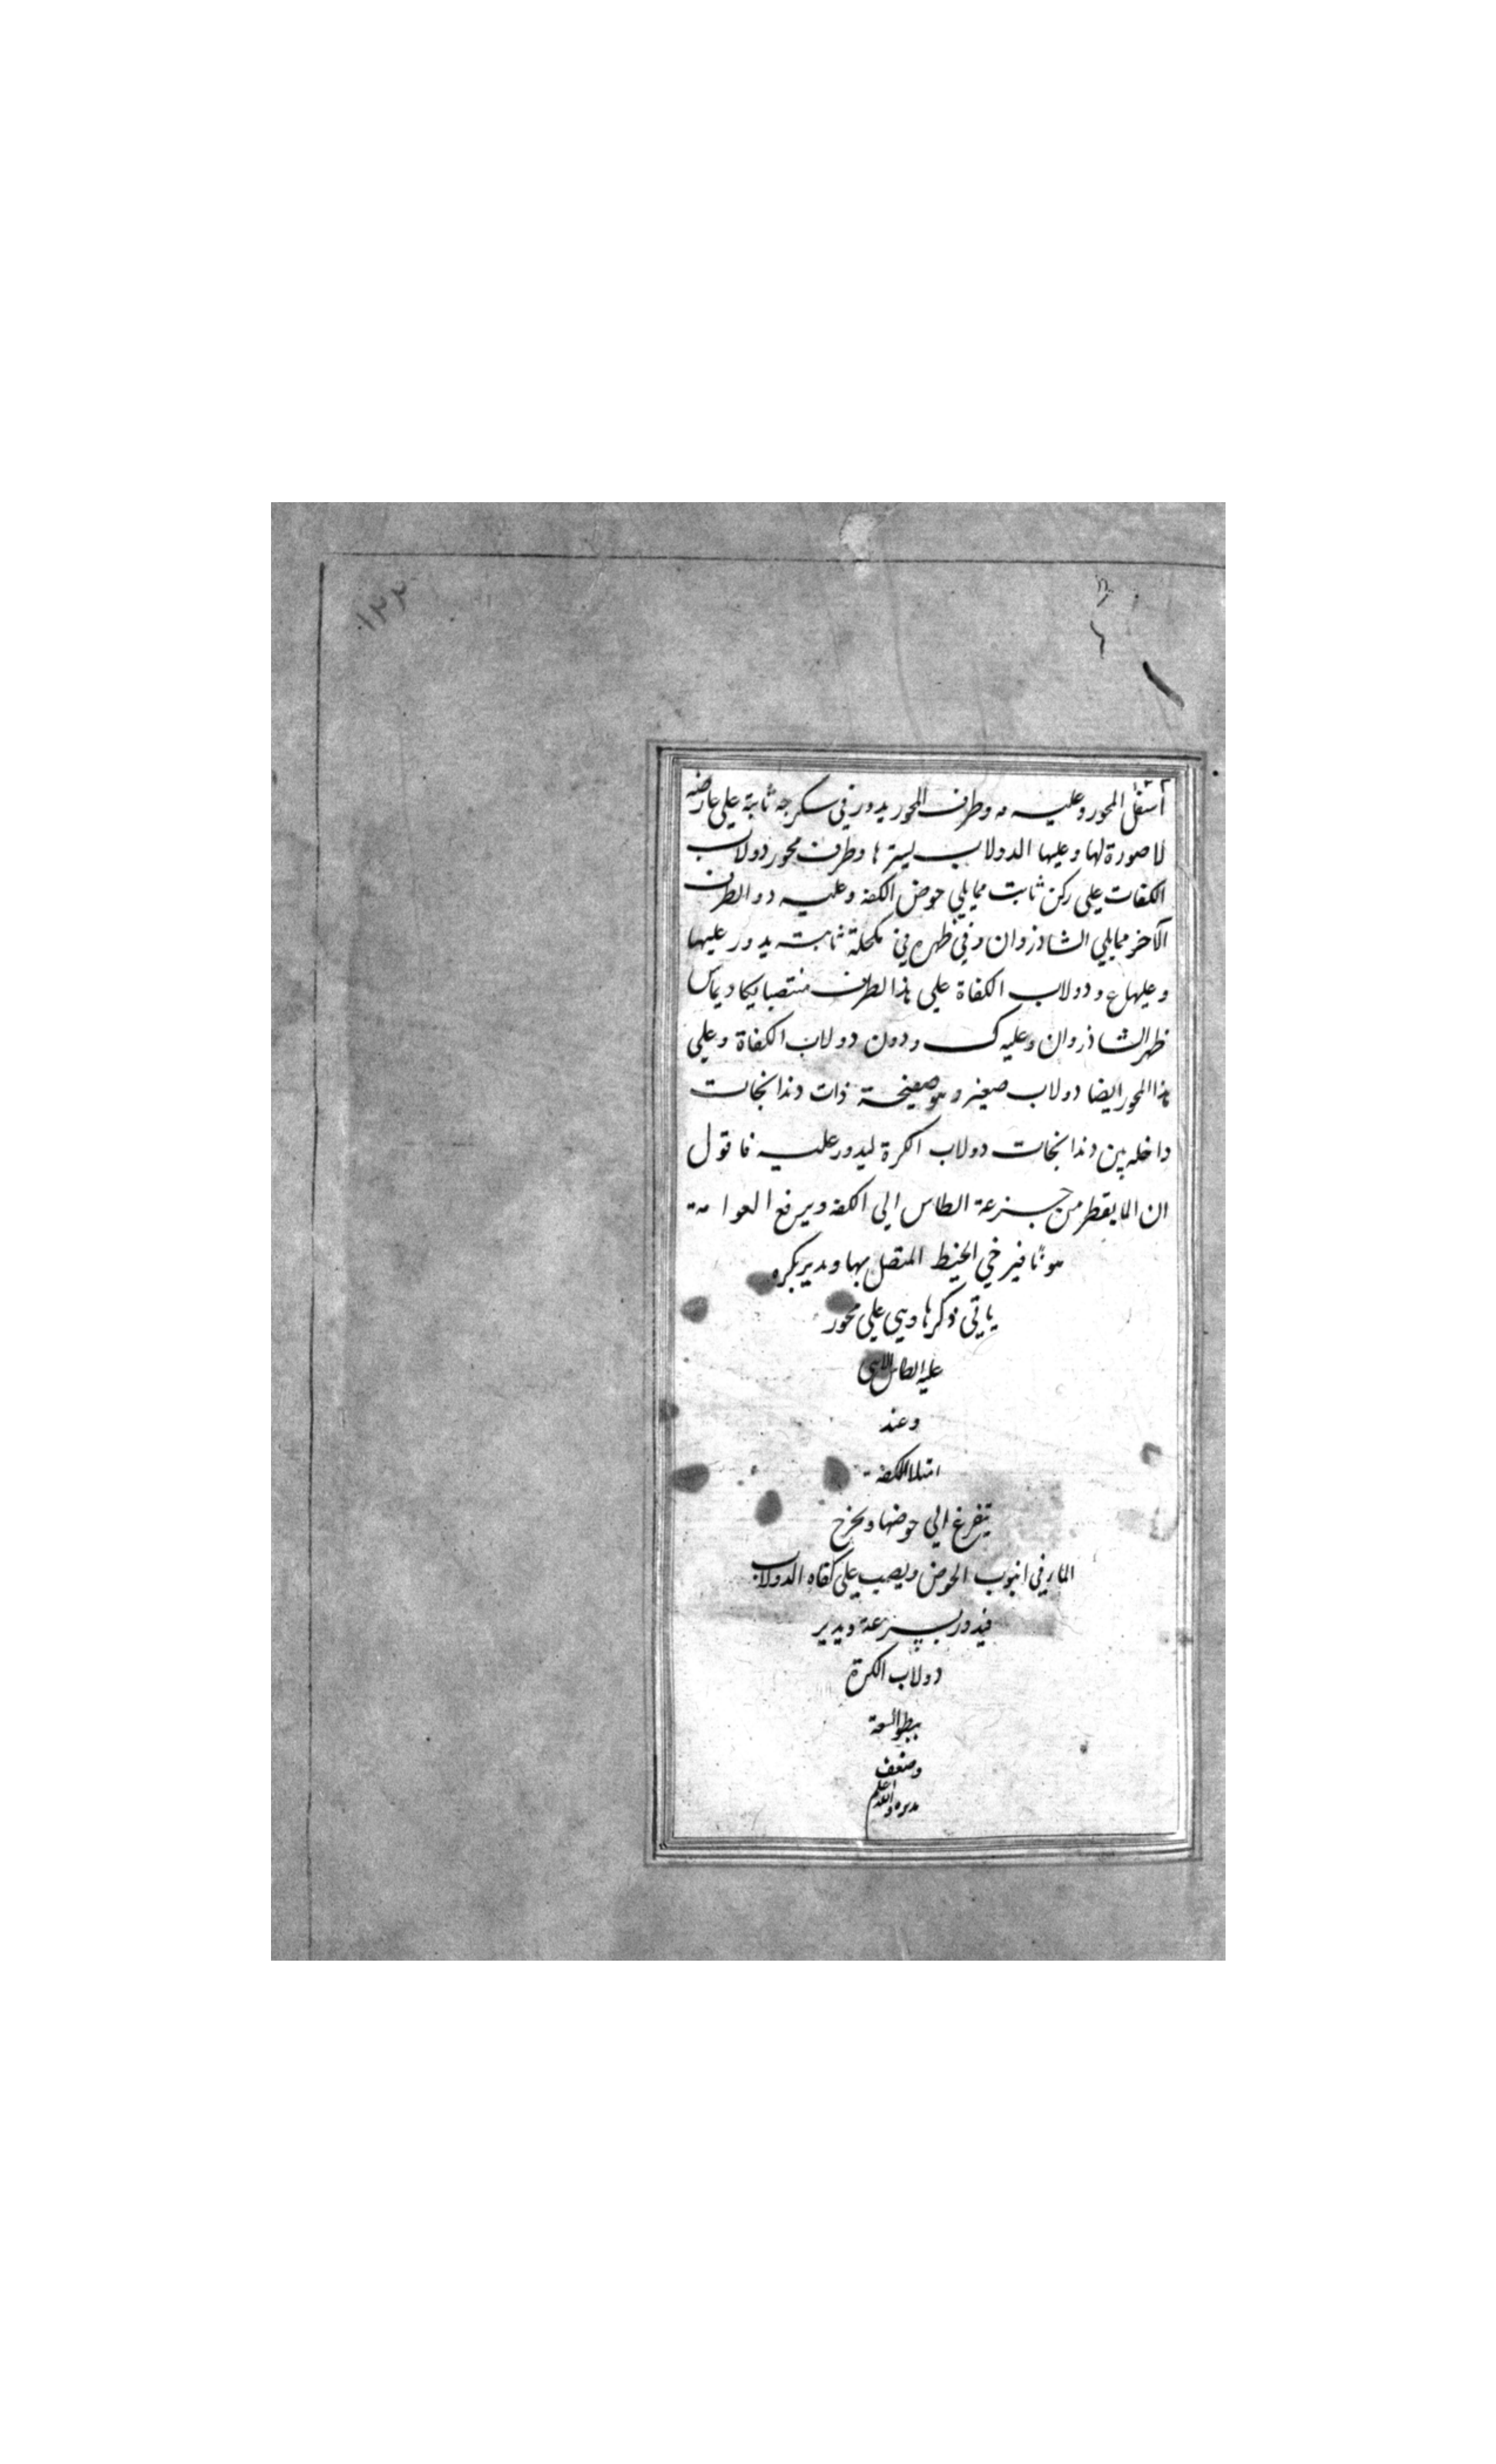 ١٢٢
أسفل المحور وعليه مه وطرف المحور يدور في سكرجه ثابتة علي عارضه
لا صورة لها وعليها الدولاب يسترها وطرف محور دولاب
الكفات علي ركن ثابت مما يلي حوض الكفه وعليه د والطرف
الآخر مما يلي الشاذروان وفي ظهره في مكحلة ثابتة يدور عليها
وعليها ع ودولاب الكفاة علي هذا لطرف منتصبا يكاد يماس
ظهر الشاذروان وعليه ك ودون دولاب الكفاة وعلي
هذا المحور ايضا دولاب صغير وهو صفيحة ذات دندانجات
داخله بين دندانجات دولاب الكرة ليدور عليه فاقول
ان الما يقطر من جزعة الطاس الي الكفه ويرفع العوامة
هونًا فيرخي الخيط المتصل بها ويدير بكره
ياتي ذكرها وهي علي محور
عليه الطاس
وعند
امتلا الكفه
يتفرغ الي حوضها ويخرج
الما في انبوب الحوض ويصب علي كفاه الدولاب
فيدور بسرعة ويدير
دولاب الكرة
ببطو لسعة
وضعف
مديره والله اعلم